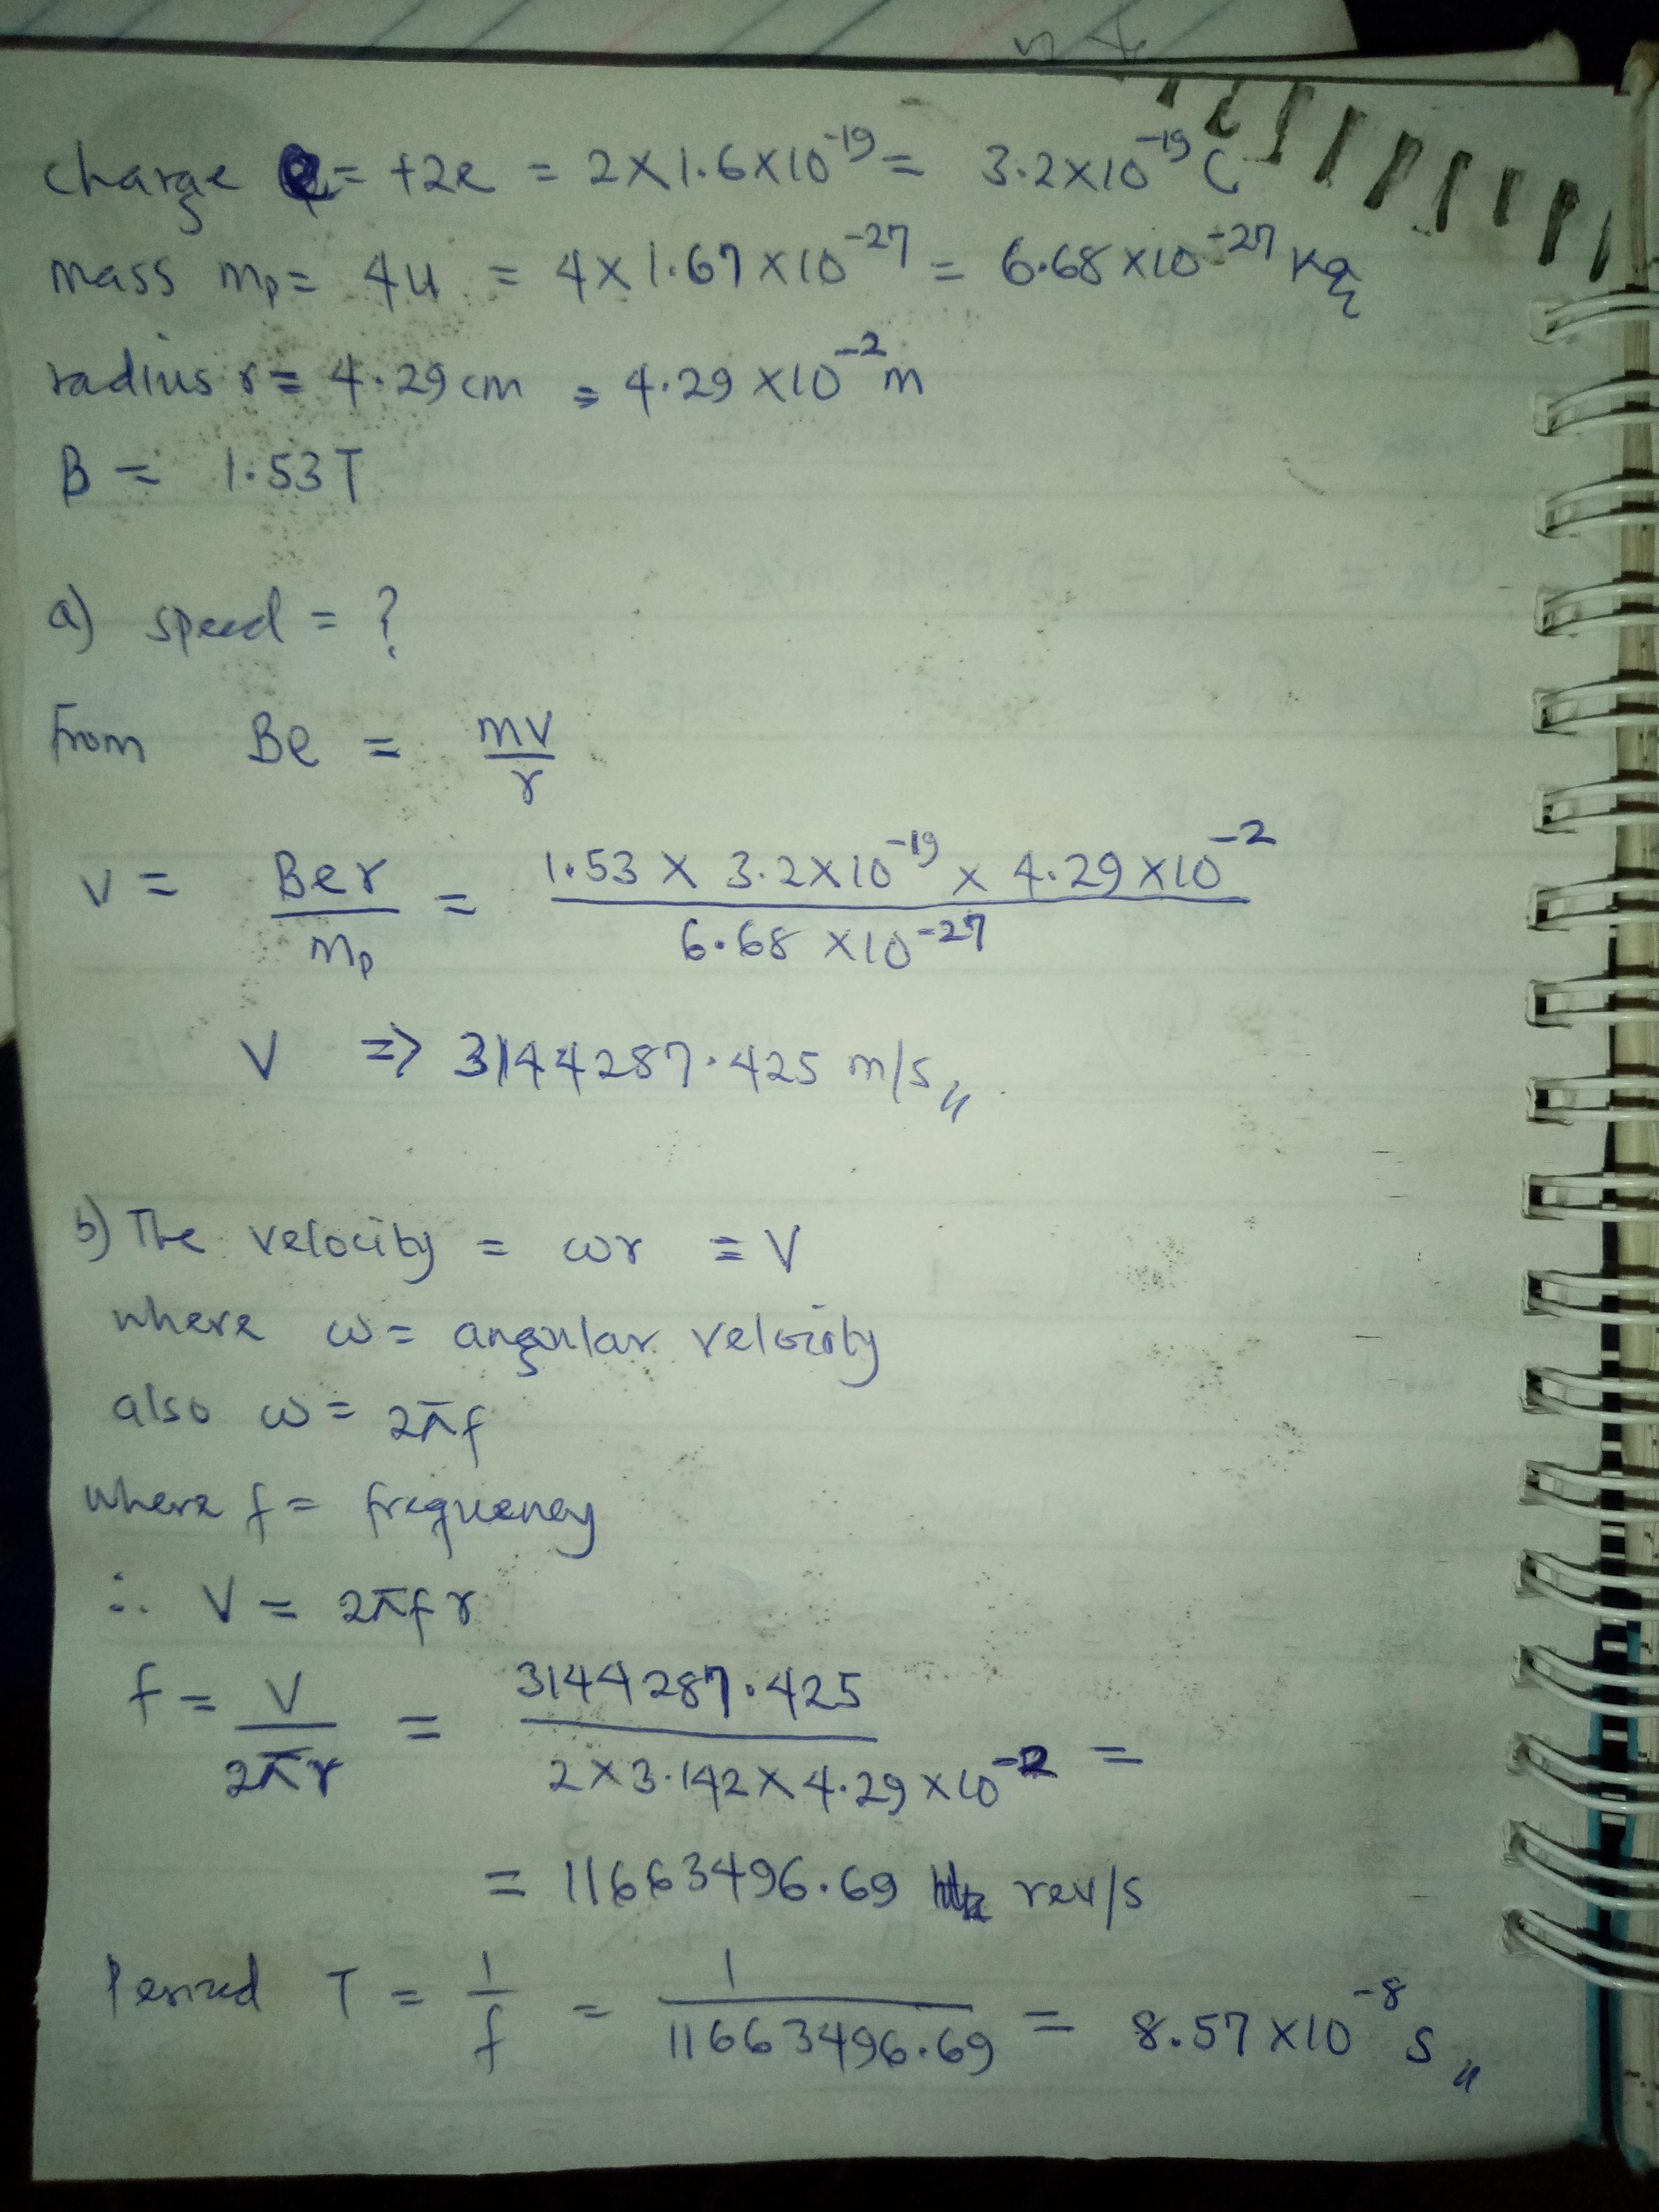 charge q = +2e = 2 × 1.6 × 10⁻¹⁹ = 3.2 × 10⁻¹⁹ C
mass mₚ = 4u = 4 × 1.67 × 10⁻²⁷ = 6.68 × 10⁻²⁷ kg
radius r = 4.29 cm = 4.29 × 10⁻² m
B = 1.53 T
a) speed = ?
From Be = mv/r
V = Ber/mₚ = (1.53 × 3.2 × 10⁻¹⁹ × 4.29 × 10⁻²)/(6.68 × 10⁻²⁷)
V => 3144287.425 m/s,,
b) The velocity = ωr = V
where ω = angular velocity
also ω = 2πf
where f = frequency
∴ V = 2πfr
f = V/2πr = 3144287.425/(2 × 3.142 × 4.29 × 10⁻²) =
= 11663496.69 rev/s
Period T = 1/f = 1/11663496.69 = 8.57 × 10⁻⁸ s,,